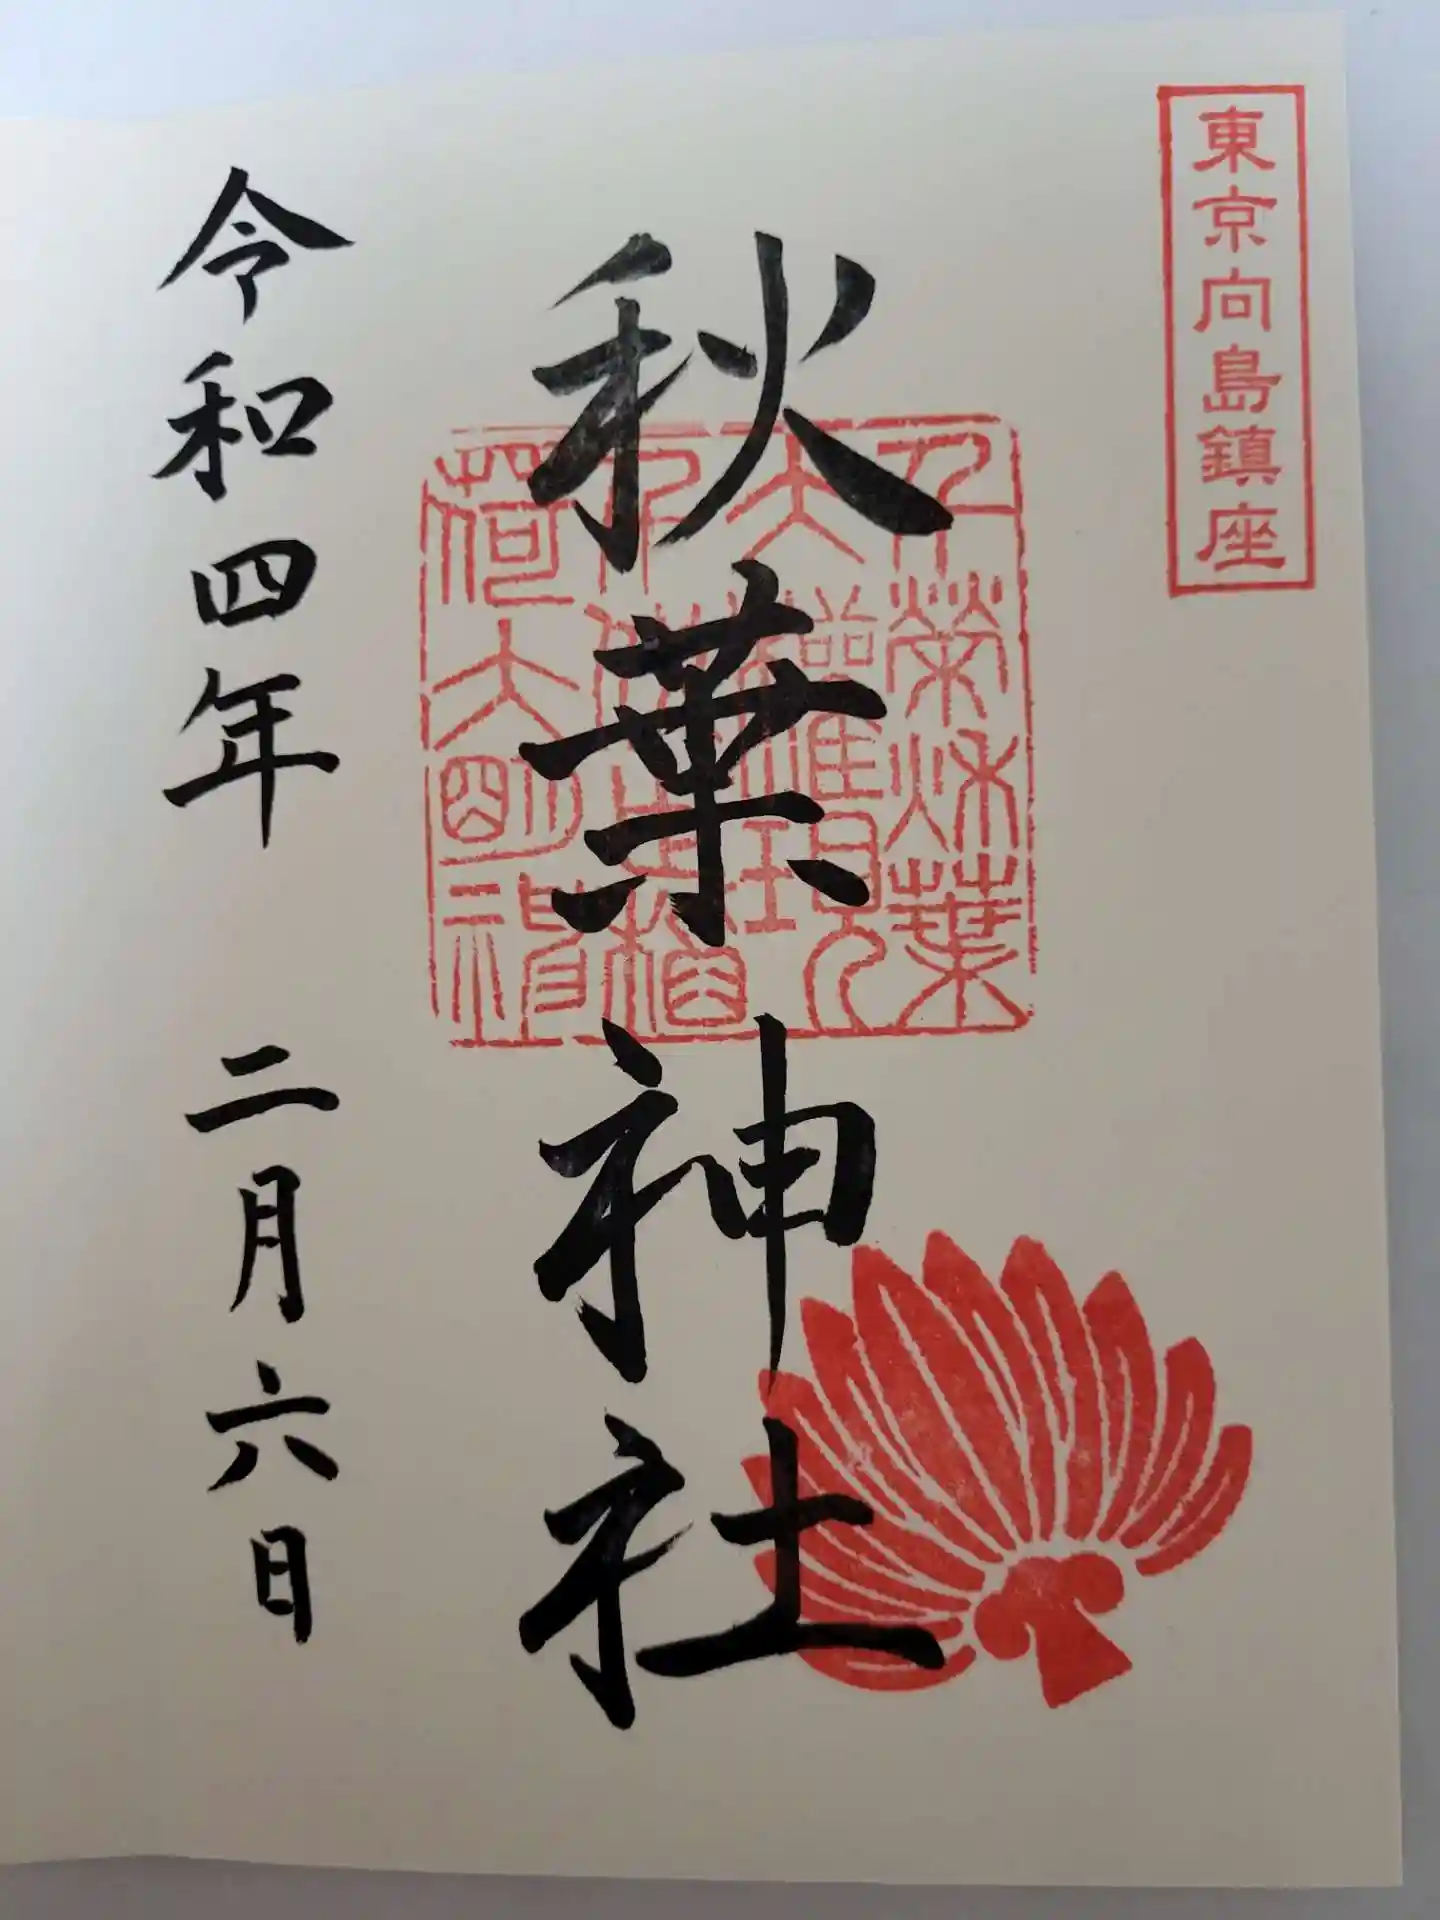 東京向島鎮座
秋葉神社
令和四年 二月六日